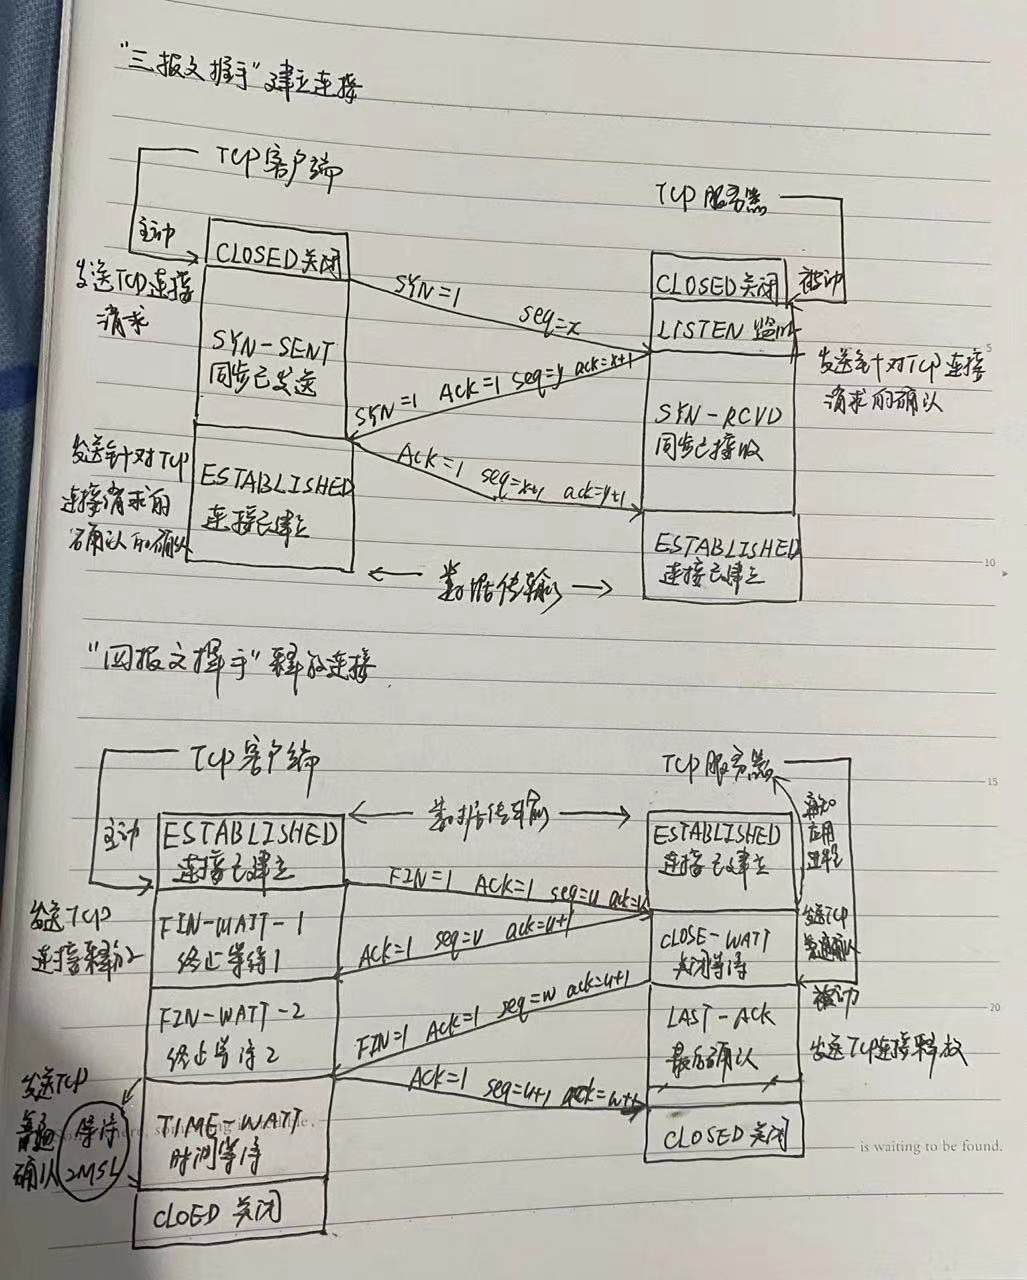 "三报文握手"建立连接
TCP客户端
TCP服务器
主动
CLOSED关闭
CLOSED关闭
被动
发送TCP连接
请求
SYN=1
seq=x
LISTEN 监听
SYN-SENT
同步已发送
SYN=1 ACK=1 seq=y ack=x+1
发送针对TCP连接
请求的确认
SYN-RCVD
同步已接收
5
发送针对TCP
连接请求的
确认的确认
ACK=1 seq=x+1 ack=y+1
ESTABLISHED
连接已建立
ESTABLISHED
连接已建立
10
数据传输
"四报文握手"释放连接
TCP客户端
TCP服务器
15
主动
数据传输
通知
应用
进程
ESTABLISHED
连接已建立
ESTABLISHED
连接已建立
FIN=1 ACK=1 seq=u ack=v
发送TCP
连接释放
FIN-WAIT-1
终止等待1
ACK=1 seq=v ack=u+1
CLOSE-WAIT
关闭等待
发送TCP
普通确认
被动
FIN-WAIT-2
终止等待2
FIN=1 ACK=1 seq=w ack=u+1
LAST-ACK
最后确认
20
发送TCP连接释放
发送TCP
普通
确认
等待
2MSL
ACK=1 seq=u+1 ack=w+1
TIME-WAIT
时间等待
CLOSED关闭
CLOED 关闭
is waiting to be found.